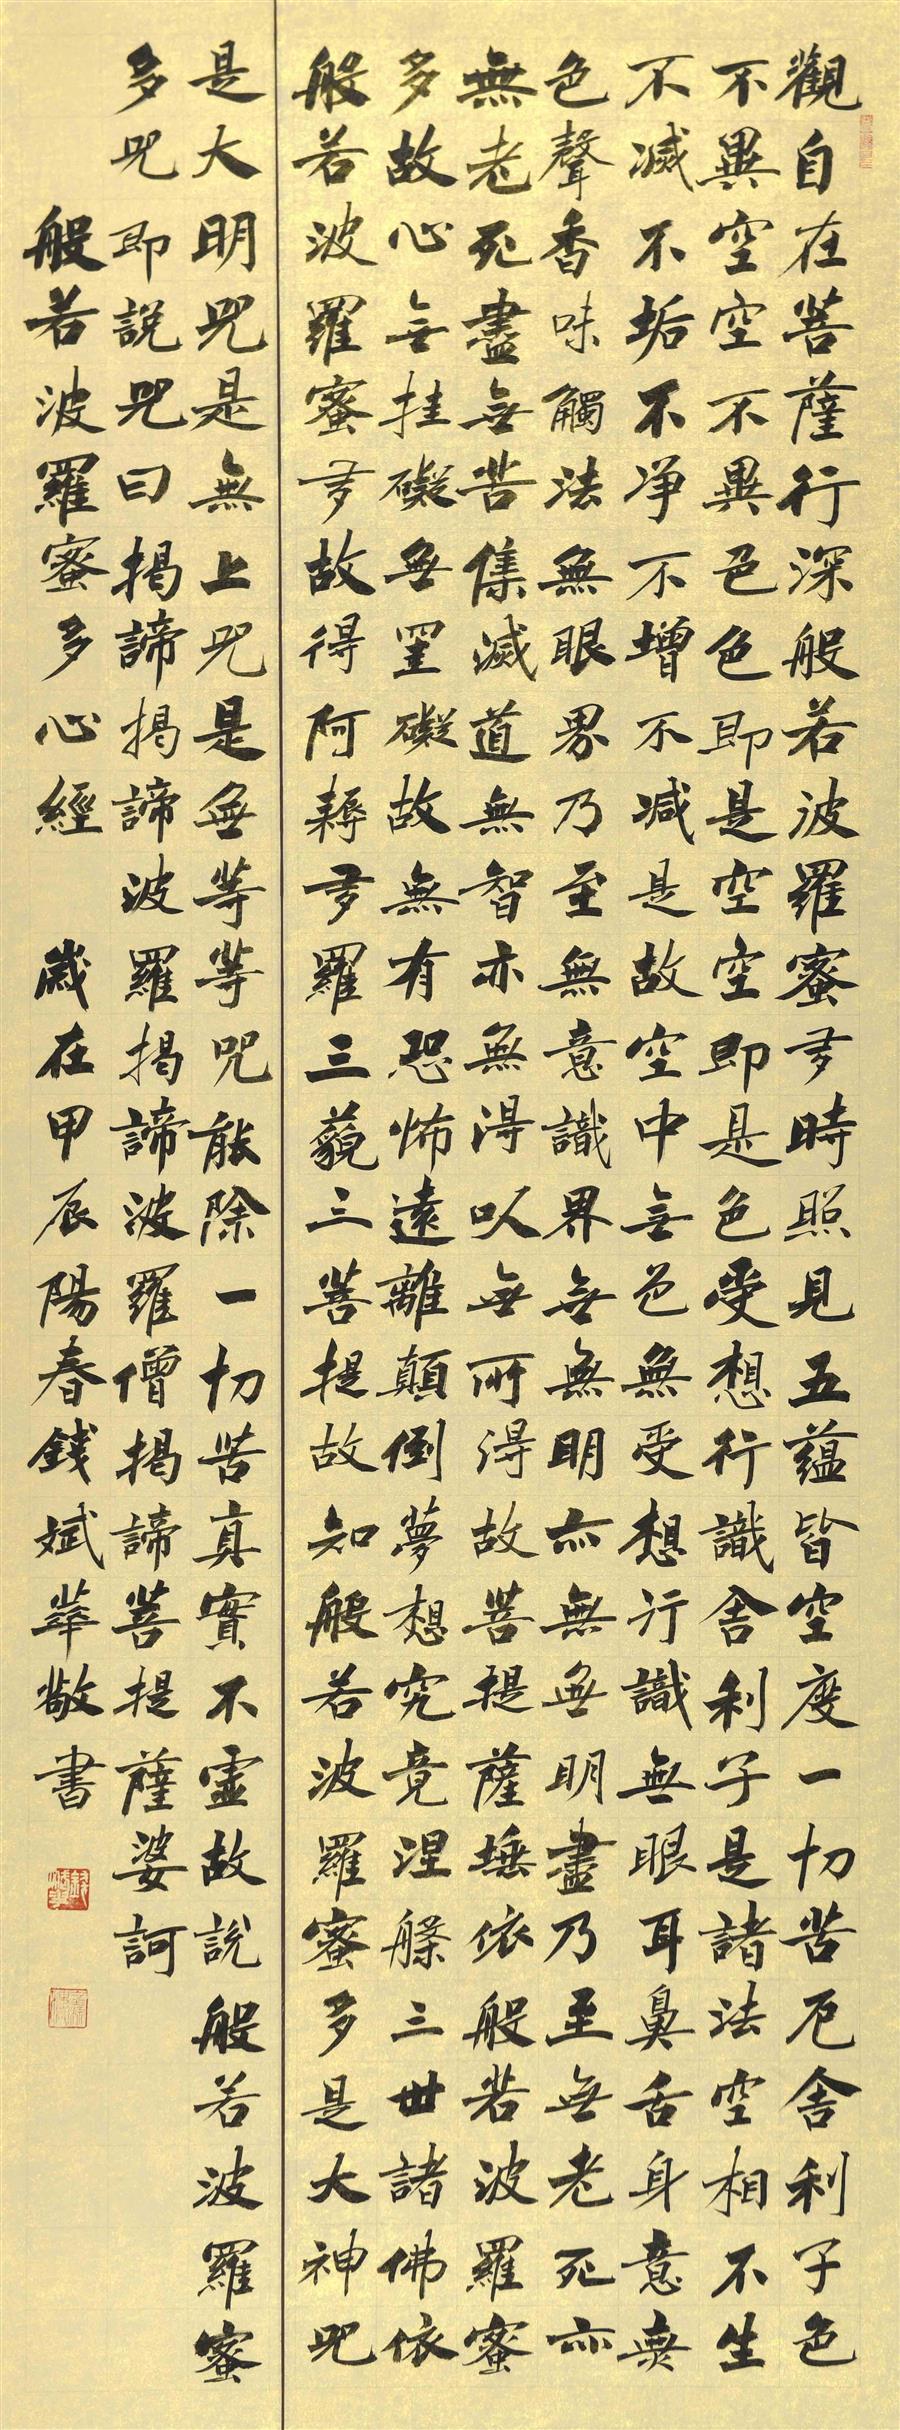 觀自在菩薩行深般若波羅蜜多時照見五蘊皆空度一切苦厄舍利子色
不異空空不異色色即是空空即是色受想行識舍利子是諸法空相不生
不滅不垢不淨不增不減是故空中無色無受想行識無眼耳鼻舌身意無
色聲香味觸法無眼界乃至無意識界無無明亦無無明盡乃至無老死亦
無老死盡無苦集滅道無智亦無得以無所得故菩提薩埵依般若波羅蜜
多故心無挂礙無罣礙故無有恐怖遠離顛倒夢想究竟涅槃三世諸佛依
般若波羅蜜多故得阿耨多羅三藐三菩提故知般若波羅蜜多是大神咒
是大明咒是無上咒是無等等咒能除一切苦真實不虛故說般若波羅蜜
多咒即說咒曰揭諦揭諦波羅揭諦波羅僧揭諦菩提薩婆訶
般若波羅蜜多心經 歲在甲辰陽春錢斌華敬書